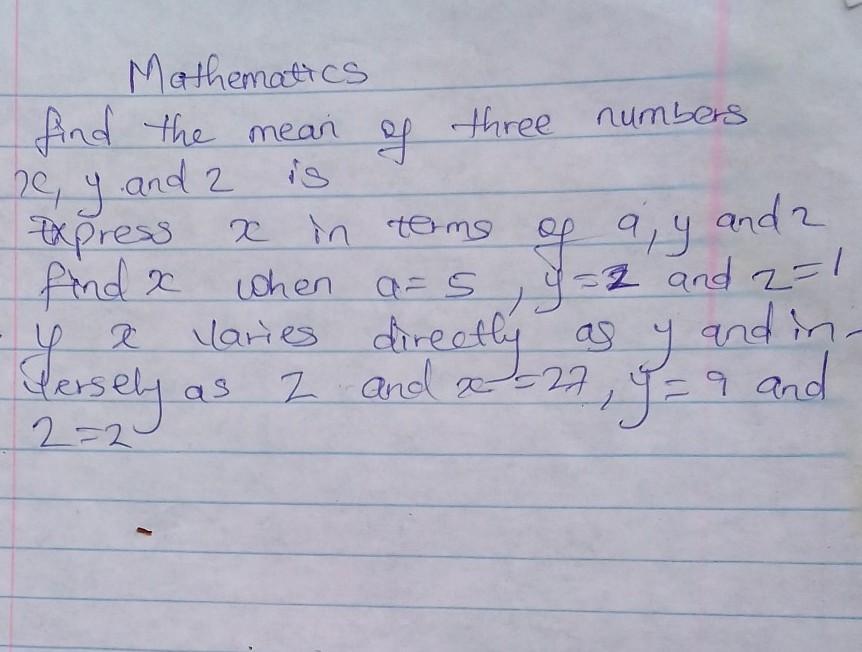 Mathematics
find the mean of three numbers
x, y and z is
Express x in terms of a, y and z
find x when a = 5, y = 2 and z = 1
If x varies directly as y and in-
versely as z and x = 27, y = 9 and
z = 2